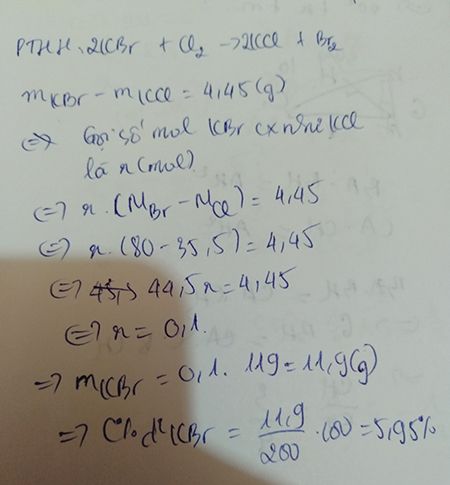 PTHH: 2KBr + Cl₂ → 2KCl + Br₂
mKBr - mKCl = 4,45(g)
<=> Gọi số mol KBr cx như KCl
là x(mol)
<=> x. (MBr - MCl) = 4,45
<=> x. (80 - 35,5) = 4,45
<=> 44,5x = 4,45
<=> x = 0,1.
=> mKBr = 0,1. 119 = 11,9(g)
=> C% d² KBr = 11,9/200 .100 = 5,95%